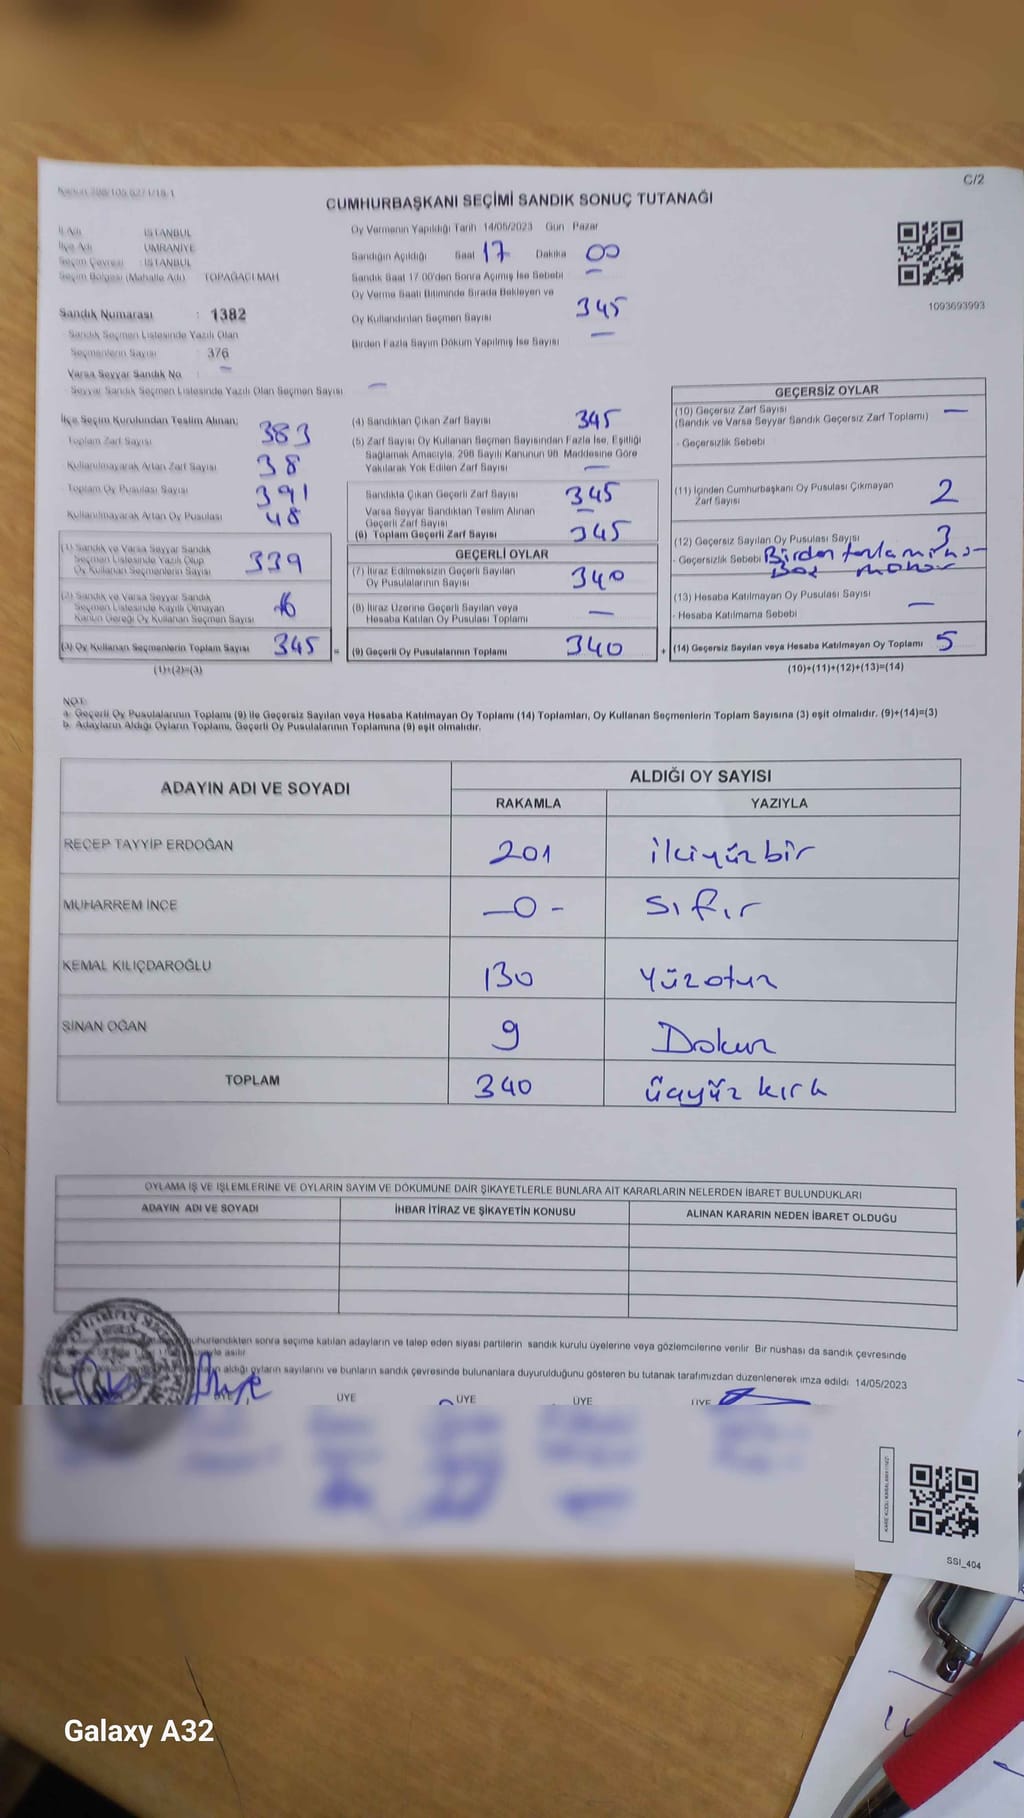 C/2
CUMHURBAŞKANI SEÇİMİ SANDIK SONUÇ TUTANAĞI
İl Adı : İSTANBUL
İlçe Adı : ÜMRANİYE
Seçim Çevresi : İSTANBUL
Seçim Bölgesi (Mahalle Adı) : TOPAĞACI MAH
Sandık Numarası : 1382
Sandık Seçmen Listesinde Yazılı Olan
Seçmenlerin Sayısı : 376
Varsa Seyyar Sandık No : —
Seyyar Sandık Seçmen Listesinde Yazılı Olan Seçmen Sayısı —
Oy Vermenin Yapıldığı Tarih 14/05/2023 Gün Pazar
Sandığın Açıldığı Saat 17 Dakika 00
Sandık Saat 17.00'den Sonra Açılmış İse Sebebi —
Oy Verme Saati Bitiminde Sırada Bekleyen ve
Oy Kullandırılan Seçmen Sayısı 345
Birden Fazla Sayım Döküm Yapılmış İse Sayısı —
1093693993
İlçe Seçim Kurulundan Teslim Alınan:
Toplam Zarf Sayısı 383
Kullanılmayarak Artan Zarf Sayısı 38
Toplam Oy Pusulası Sayısı 391
Kullanılmayarak Artan Oy Pusulası 48
(1) Sandık ve Varsa Seyyar Sandık
Seçmen Listesinde Yazılı Olup
Oy Kullanan Seçmenlerin Sayısı 339
(2) Sandık ve Varsa Seyyar Sandık
Seçmen Listesinde Kayıtlı Olmayan
Kanun Gereği Oy Kullanan Seçmen Sayısı 6
(3) Oy Kullanan Seçmenlerin Toplam Sayısı 345 =
(1)+(2)=(3)
(4) Sandıktan Çıkan Zarf Sayısı 345
(5) Zarf Sayısı Oy Kullanan Seçmen Sayısından Fazla İse, Eşitliği
Sağlamak Amacıyla, 298 Sayılı Kanunun 98. Maddesine Göre
Yakılarak Yok Edilen Zarf Sayısı —
Sandıkta Çıkan Geçerli Zarf Sayısı 345
Varsa Seyyar Sandıktan Teslim Alınan
Geçerli Zarf Sayısı —
(6) Toplam Geçerli Zarf Sayısı 345
GEÇERLİ OYLAR
(7) İtiraz Edilmeksizin Geçerli Sayılan
Oy Pusulalarının Sayısı 340
(8) İtiraz Üzerine Geçerli Sayılan veya
Hesaba Katılan Oy Pusulası Toplamı —
(9) Geçerli Oy Pusulalarının Toplamı 340 +
GEÇERSİZ OYLAR
(10) Geçersiz Zarf Sayısı —
(Sandık ve Varsa Seyyar Sandık Geçersiz Zarf Toplamı)
- Geçersizlik Sebebi
(11) İçinden Cumhurbaşkanı Oy Pusulası Çıkmayan
Zarf Sayısı 2
(12) Geçersiz Sayılan Oy Pusulası Sayısı 3
- Geçersizlik Sebebi Birden fazla mühür
(13) Hesaba Katılmayan Oy Pusulası Sayısı —
- Hesaba Katılmama Sebebi
(14) Geçersiz Sayılan veya Hesaba Katılmayan Oy Toplamı 5
(10)+(11)+(12)+(13)=(14)
NOT:
a- Geçerli Oy Pusulalarının Toplamı (9) ile Geçersiz Sayılan veya Hesaba Katılmayan Oy Toplamı (14) Toplamları, Oy Kullanan Seçmenlerin Toplam Sayısına (3) eşit olmalıdır. (9)+(14)=(3)
b- Adayların Aldığı Oyların Toplamı, Geçerli Oy Pusulalarının Toplamına (9) eşit olmalıdır.
ADAYIN ADI VE SOYADI
ALDIĞI OY SAYISI
RAKAMLA YAZIYLA
RECEP TAYYİP ERDOĞAN 201 ikiyüzbir
MUHARREM İNCE —0- sıfır
KEMAL KILIÇDAROĞLU 130 Yüzotuz
SİNAN OĞAN 9 Dokuz
TOPLAM 340 üçyüz kırk
OYLAMA İŞ VE İŞLEMLERİNE VE OYLARIN SAYIM VE DÖKÜMÜNE DAİR ŞİKAYETLERLE BUNLARA AİT KARARLARIN NELERDEN İBARET BULUNDUKLARI
ADAYIN ADI VE SOYADI İHBAR İTİRAZ VE ŞİKAYETİN KONUSU ALINAN KARARIN NEDEN İBARET OLDUĞU
mühürlendikten sonra seçime katılan adayların ve talep eden siyasi partilerin sandık kurulu üyelerine veya gözlemcilerine verilir. Bir nushası da sandık çevresinde
asılır.
aldığı oyların sayılarını ve bunların sandık çevresinde bulunanlara duyurulduğunu gösteren bu tutanak tarafımızdan düzenlenerek imza edildi. 14/05/2023
ÜYE ÜYE ÜYE ÜYE ÜYE
SSI_404
Galaxy A32